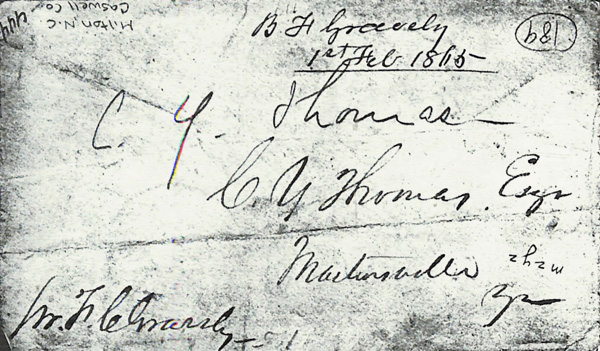 Milton, N.C.
Caswell Co
444
B F Gravely
1st Feb 1865
189
C. Y. Thomas
C Y Thomas. Esqr
Martinsville
Va